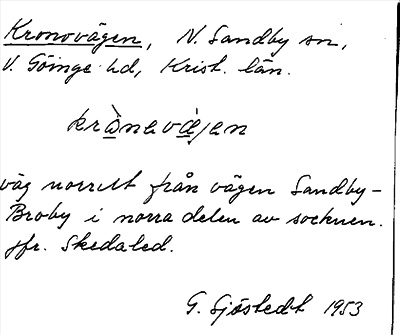 Kronovägen, N. Sandby sn,
V. Göinge hd, Krist. län.
krànavä̀jen
väg norrut från vägen Sandby-
Broby i norra delen av socknen.
jfr. Skedaled.
G. Sjöstedt 1953